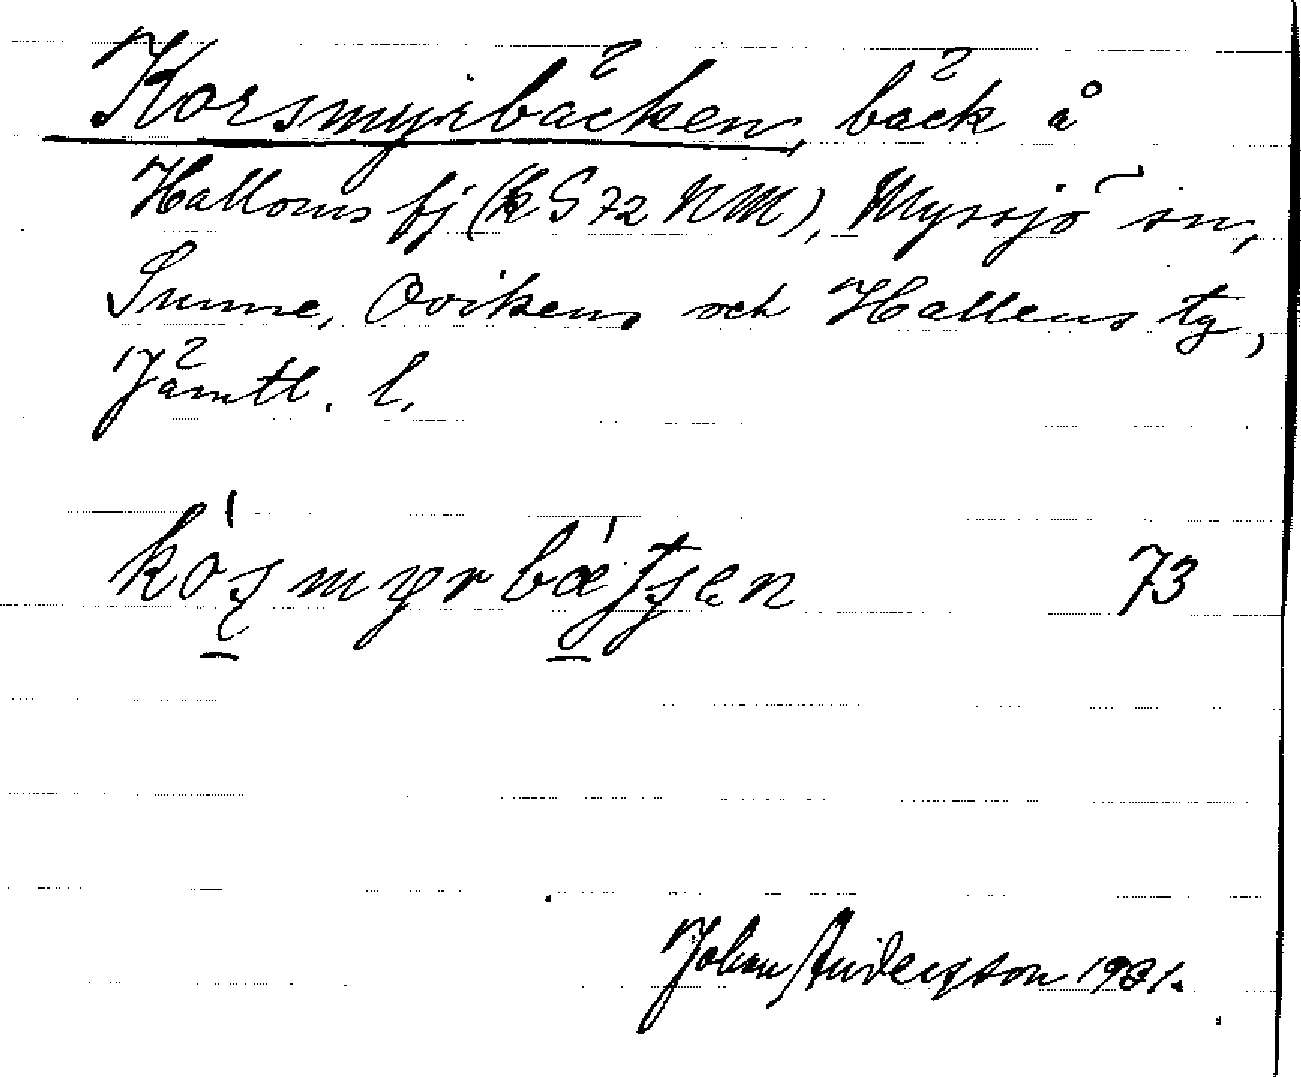 Korsmyrbäcken, bäck å
Halloms fj (k S 72 NM), Myssjö sn,
Sunne, Ovikens och Hallens tg,
Jämtl. l.
kòs̩myrbæ̀tʃen 73
Johan Anderson 1931.